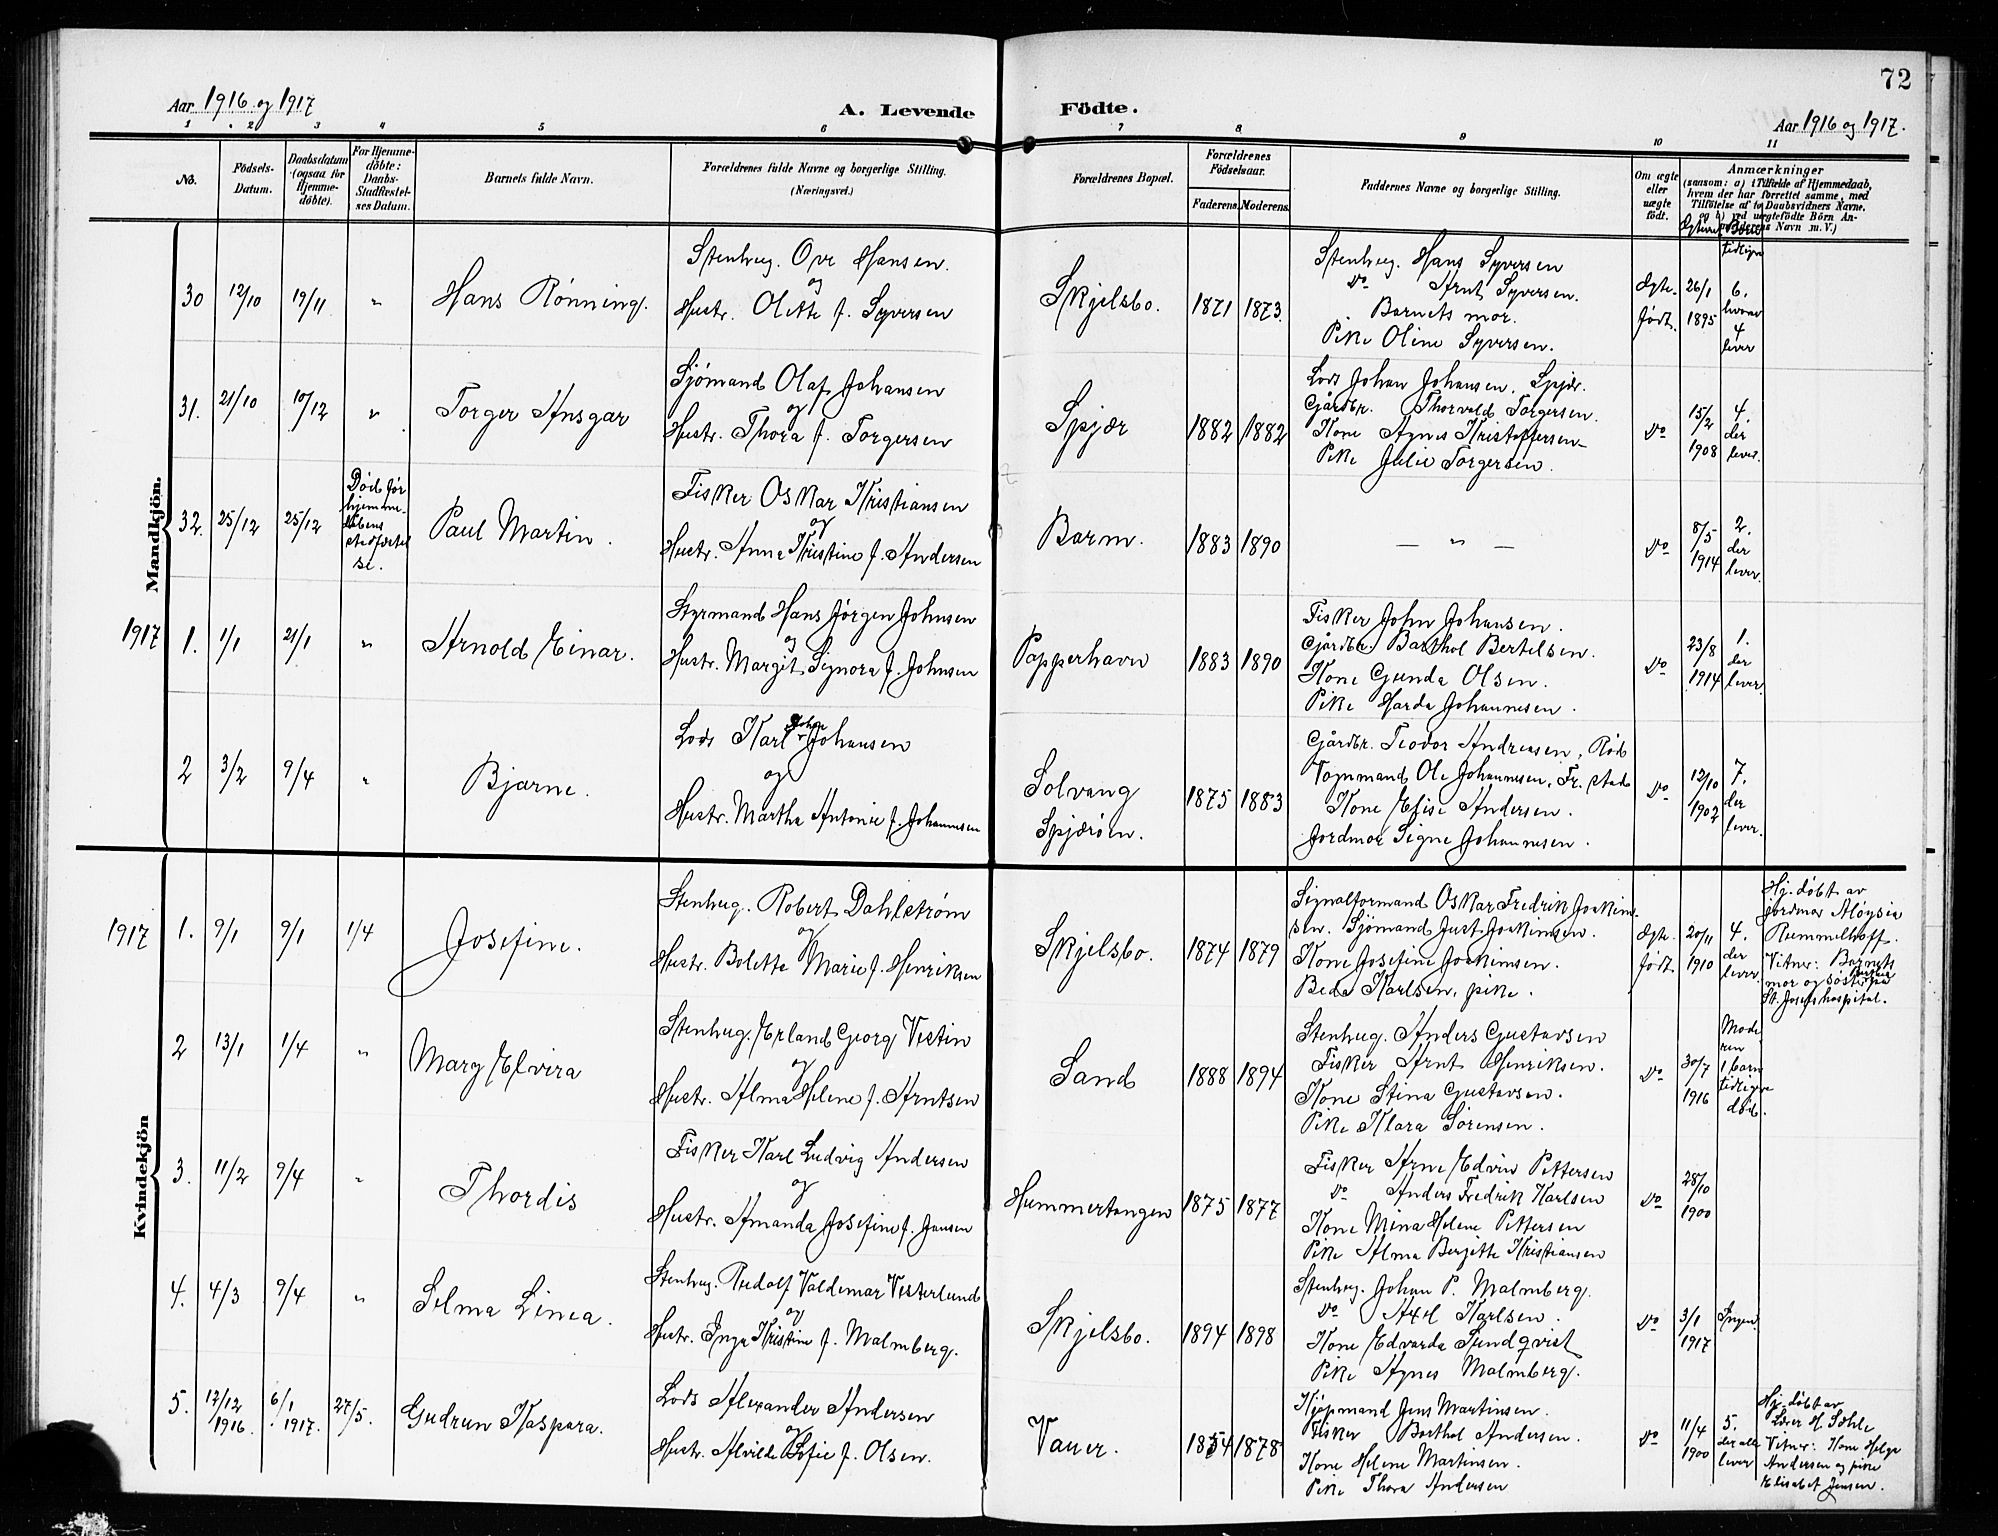 72
Aar 1916 og 1917
A. Levende Födte.
Aar 1916 og 1917.
1 2 3 4 5 6 7 8 9 10 11
No.
Födsels-
Datum.
Daabsdatum
(ogsaa for
Hjemme-
döbte).
For Hjemme-
döbte:
Daabs-
Stadfæstel-
ses Datum.
Barnets fulde Navn.
Forældrenes fulde Navne og borgerlige Stilling.
(Næringsvei.)
Forældrenes Bopæl.
Forældrenes
Födselsaar.
Faderens. Moderens.
Faddernes Navne og borgerlige Stilling.
Om ægte
eller
uægte
födt.
Anmærkninger
(saasom: a) i Tilfælde af Hjemmedaab,
hvem der har forrettet samme, med
Tilföielse af to Daabsvidners Navne.
og b) ved uægtefödte Börn An-
Navn m. V.)
Børn
tidligre
Mandkjön.
30 12/10 19/11 " Hans Rønning.
Stenhug. Ove Hansen.
og
Hustr. Olette f. Syversen
Skjelsbo. 1871 1873.
Stenhug. Hans Syversen
Do Arnt Syversen.
Barnets mor.
Pike Oline Syversen.
Ægte-
født.
26/1
1895
6.
hvorav
4
lever
31. 21/10 10/12 " Torger Ansgar
Sjømand Olaf Johansen
og
Hustr. Thora f. Torgersen
Spjær 1882 1882
Lods Johan Johansen, Spjær.
Gårdbr. Thorvald Torgersen.
Kone Agnes Kristoffersen
Pike Julie Torgersen.
Do
15/2
1908
4.
der
lever.
32. 25/12 25/12
Død før
hjemme-
dåbens
stadfæstel
se.
Paul Martin.
Fisker Oskar Kristiansen
og
Hustr. Anne Kristine f. Andersen
Barm. 1883 1890
— " —
Do
8/5
1914
2.
der
lever.
1917 1. 1/1 21/1 " Arnold Einar.
Styrmand Hans Jørgen Johnsen
og
Hustr. Margit Signora f. Johnsen
Papperhavn 1883 1890
Fisker John Johansen.
Gårdbr. Barthol Bertelsen.
Kone Gunda Olsen.
Pike Harda Johannesen.
Do
23/8
1914
1.
der
lever.
2 3/2 9/4 " Bjarne.
Lods Karl Johan Johansen
og
Hustr. Martha Antonie f. Johannesen
Solvang
Spjærøen.
1875 1883
Gårdbr. Teodor Andreasen, Rød
Vognmand Ole Johannesen, Fr. stad
Kone Elise Andersen.
Jordmor Signe Johannesen.
Do
12/10
1902
7.
der
lever.
Kvindekjön
1917 1. 9/1 9/1 1/4 Josefine.
Stenhug. Robert Dahlstrøm
og
Hustr. Bolette Marie f. Henriksen
Skjelsbo. 1874 1879
Signalformand Oskar Fredrik Joakim-
sen. Sjømand Just Joakimsen.
Kone Josefine Joakimsen.
Beda Karlsen, pike.
Ægte.
født
20/11
1910
4.
der
lever.
Hj. døbt av
jordmor Aloysia
Rummelhoff.
Vitner: Barnets
mor og søster
St. Josefs hospital.
2 13/1 1/4 " Mary Elvira
Stenhug. Erland Georg Vestin
og
Hustr. Alma Helene f. Arntsen
Sand 1888 1894
Stenhug. Anders Gustavsen
Fisker Arnt Henriksen.
Kone Stina Gustavsen.
Pike Klara Sørensen.
Do
30/7
1916
Mode
ren
1 barn
tidligre
død.
3. 11/2 9/4 " Thordis
Fisker Karl Ludvig Andersen
og
Hustr. Amanda Josefine f. Jansen
Hummertangen 1875 1877
Fisker Arne Edvin Pettersen
Do Anders Fredrik Karlsen
Kone Mina Helene Pettersen
Pike Alma Berjette Kristiansen
Do
28/10
1900
4. 4/3 9/4 " Selma Linea.
Stenhug. Rudolf Valdemar Vesterlund
og
Hustr. Inga Kristine f. Malmberg.
Skjelsbo. 1894 1898
Stenhug. Johan P. Malmberg.
Do Axel Karlsen.
Kone Edvarda Sundqvist
Pike Agnes Malmberg.
Do
3/1
1917
Ingen.
5. 12/12 1916. 6/1 1917. 27/5. Gudrun Kaspara.
Lods Alexander Andersen
og
Hustr. Alvilde Sofie f. Olsen.
Vauer. 1878
Kjøpmand Jens Martinsen.
Fisker Barthol Andersen.
Kone Helene Martinsen.
Pike Thora Andersen
Do
11/4
1900
5.
der alle
lever
Hj. døbt av
Lærer H. Sæhle
Vitner: Kone Helga
Andersen og pike
Elisabet Jensen.